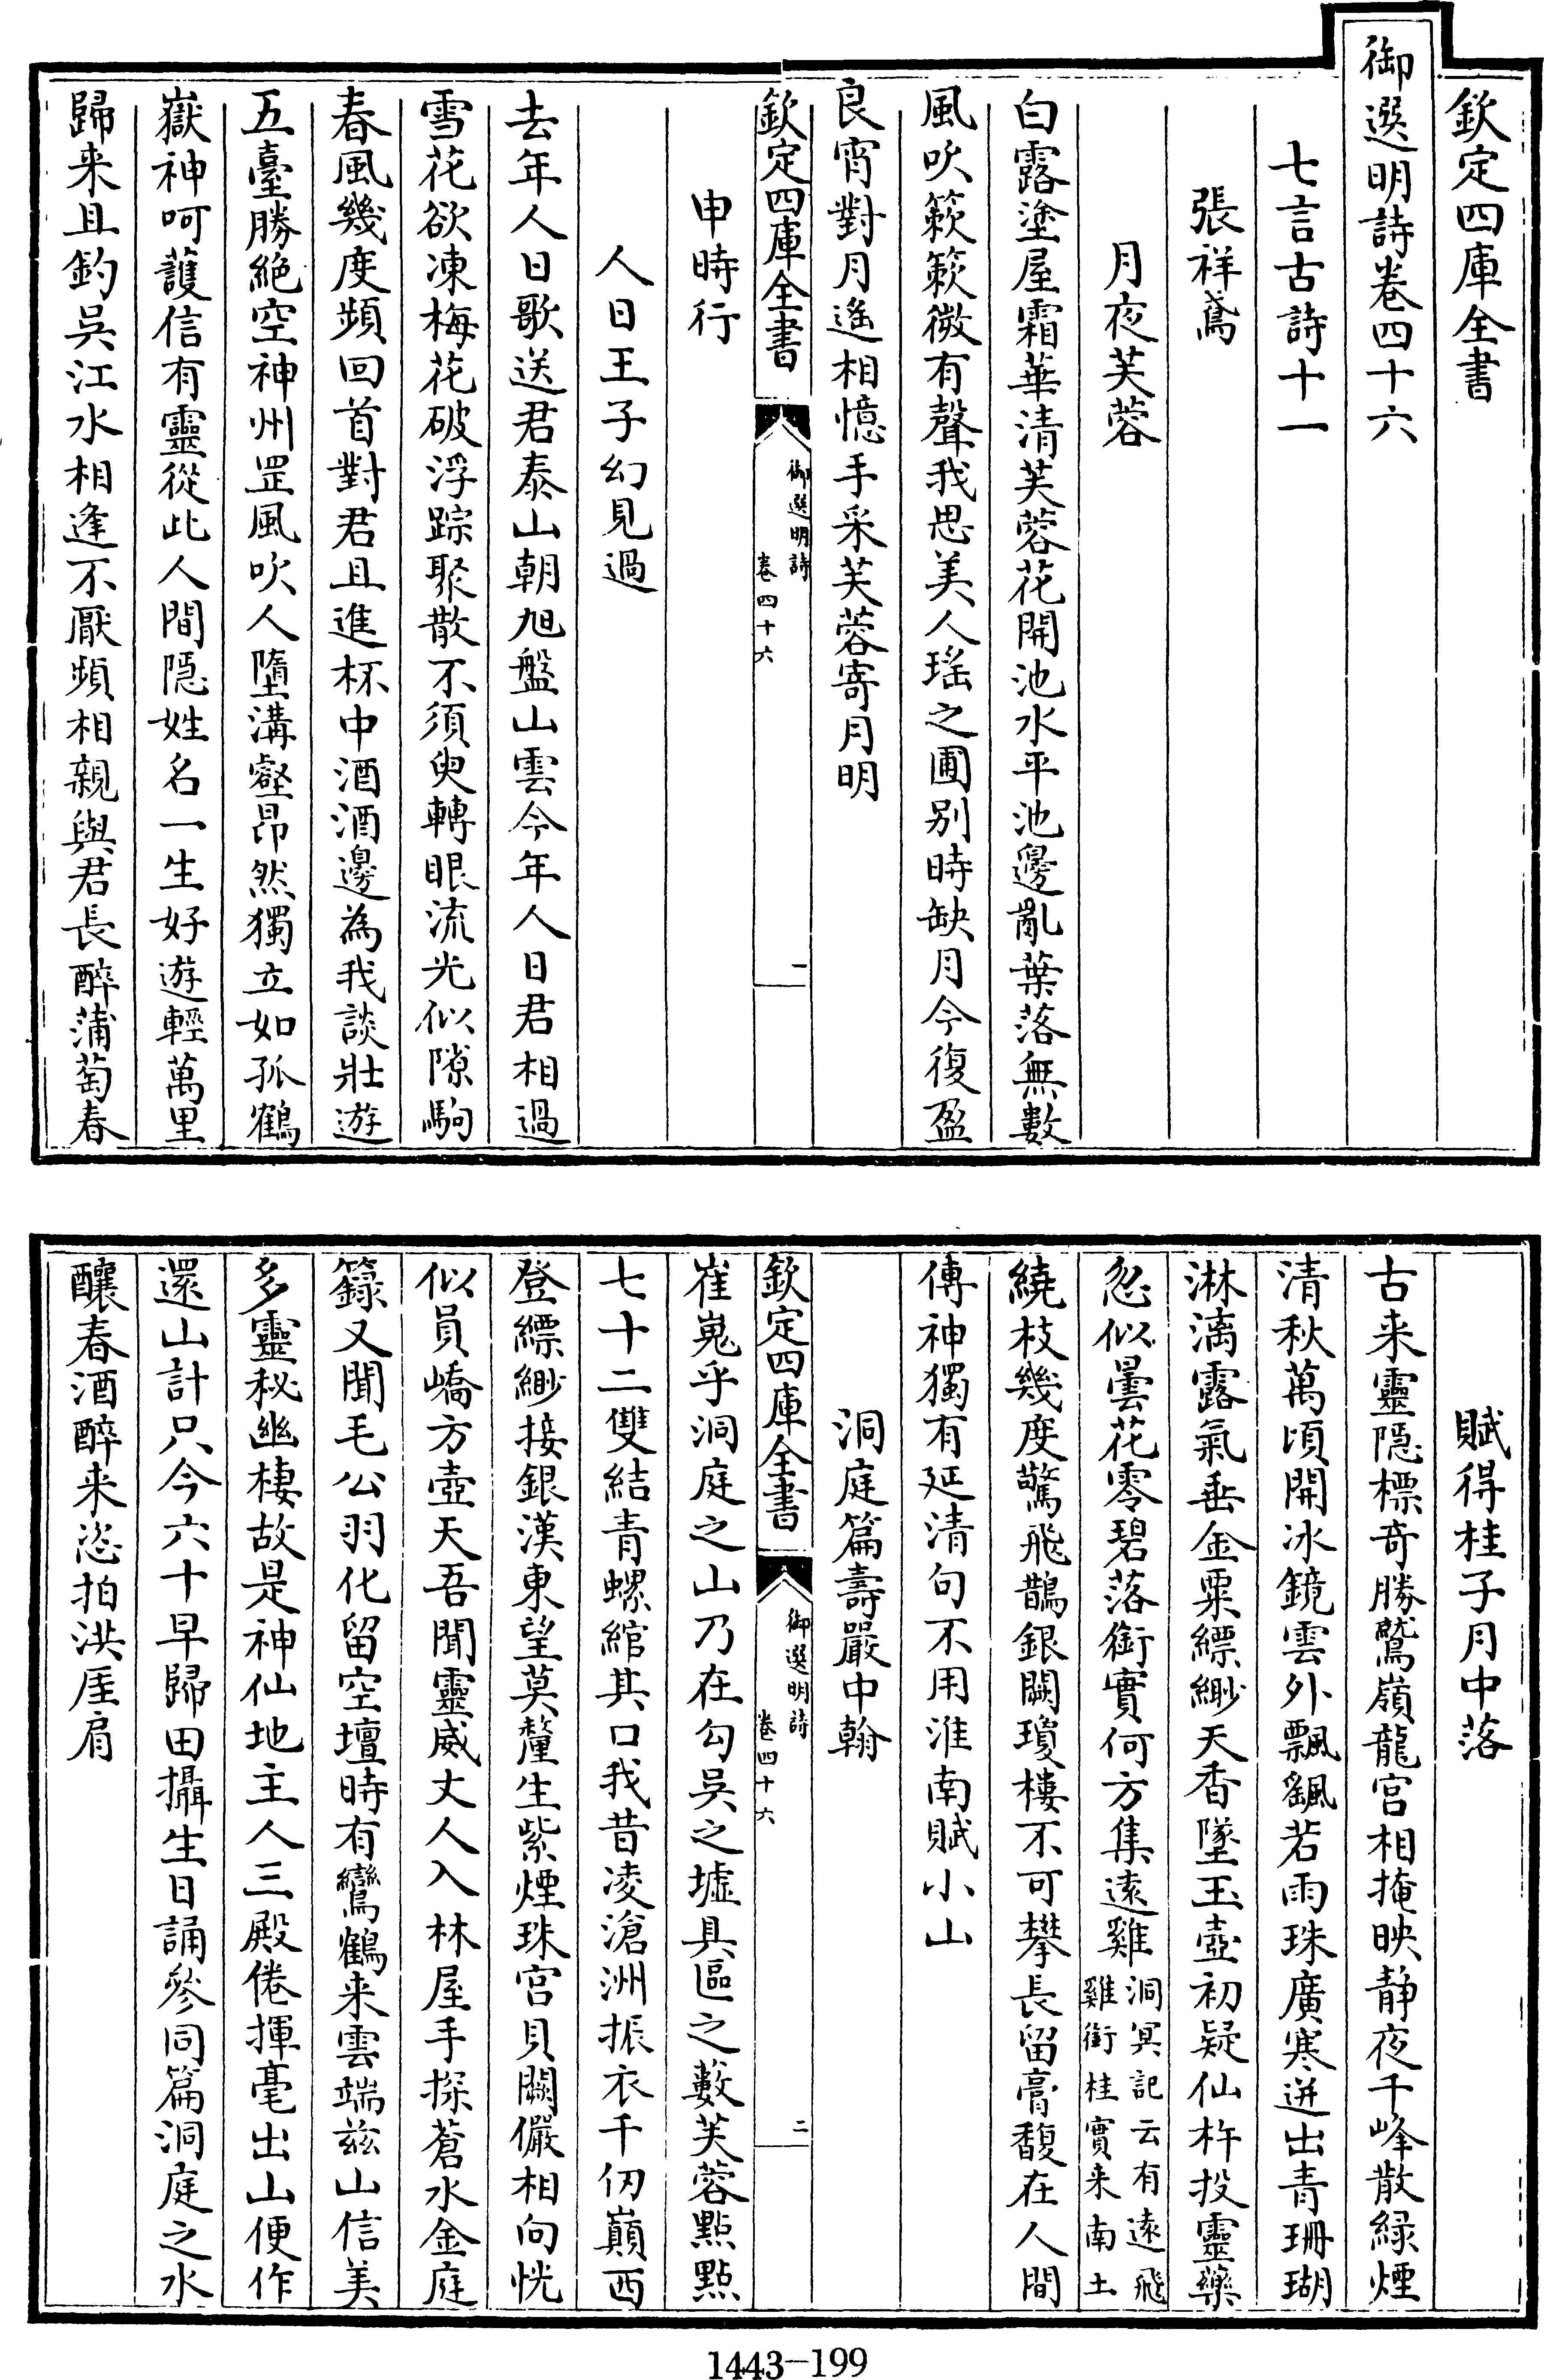 欽定四庫全書
御選明詩卷四十六
七言古詩十一
張祥鳶
月夜芙蓉
白露塗屋霜華清芙蓉花開池水平池邊亂葉落無數
風吹簌簌微有聲我思美人瑤之圃别時缺月今復盈
良宵對月遙相憶手采芙蓉寄月明
欽定四庫全書
御選明詩
卷四十六
一
申時行
人日王子幻見過
去年人日歌送君泰山朝旭盤山雲今年人日君相過
雪花欲凍梅花破浮踪聚散不須臾轉眼流光似隙駒
春風幾度頻回首對君且進杯中酒酒邊為我談壯遊
五臺勝絶空神州罡風吹人墮溝壑昂然獨立如孤鶴
嶽神呵護信有靈從此人間隱姓名一生好遊輕萬里
歸来且釣吳江水相逢不厭頻相親與君長醉蒲萄春
賦得桂子月中落
古来靈隱標奇勝鷲嶺龍宮相掩映静夜千峰散緑煙
清秋萬頃開冰鏡雲外飄颻若雨珠廣寒迸出青珊瑚
淋漓露氣垂金粟縹緲天香墜玉壺初疑仙杵投靈藥
忽似曇花零碧落銜實何方集遠雞洞冥記云有遠飛
雞銜桂實来南土
繞枝幾度驚飛鵲銀闕瓊樓不可攀長留膏馥在人間
傳神獨有延清句不用淮南賦小山
洞庭篇壽嚴中翰
欽定四庫全書
御選明詩
卷四十六
二
崔嵬乎洞庭之山乃在勾吳之墟具區之藪芙蓉點點
七十二雙結青螺綰其口我昔凌滄洲振衣千仞巔西
登縹緲接銀漢東望莫釐生紫煙珠宮貝闕儼相向恍
似員嶠方壺天吾聞靈威丈人入林屋手探蒼水金庭
籙又聞毛公羽化留空壇時有鸞鶴来雲端兹山信美
多靈秘幽棲故是神仙地主人三殿倦揮毫出山便作
還山計只今六十早歸田攝生日誦參同篇洞庭之水
釀春酒醉来恣拍洪厓肩
1443-199